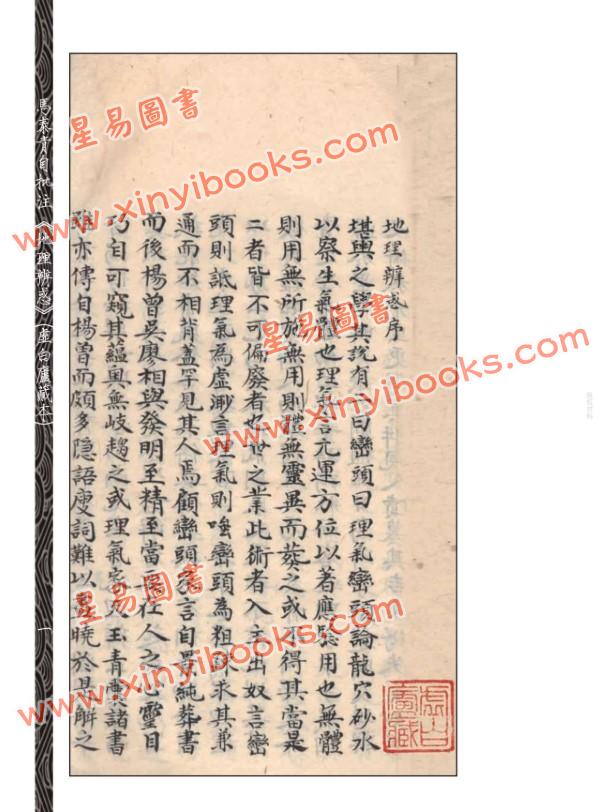 地理辨惑序
堪輿之學其說有二曰巒頭曰理氣巒頭論龍穴砂水
以察生氣體也理氣言元運方位以著應驗用也無體
則用無所施無用則體無靈異而葬之或不得其當是
二者皆不可偏廢者也世之業此術者入主出奴言巒
頭則詆理氣為虛渺言理氣則嗤巒頭為粗疎求其兼
通而不相背蓋罕見其人焉顧巒頭家言自景純葬書
而後楊曾吳廖相與發明至精至當
在人之心靈目
巧自可窺其蘊奧無岐趨之或理氣家
玉青囊諸書
雖亦傳自楊曾而頗多隱語廋詞難以盡曉於是解之
虛白廬藏
馬泰青自批注《地理辨惑》(虛白廬藏本)
一
星易圖書
www.xinyibooks.com
星易圖書
www.xinyibooks.com
星易圖書
www.xinyibooks.com
星易圖書
www.xinyibooks.com